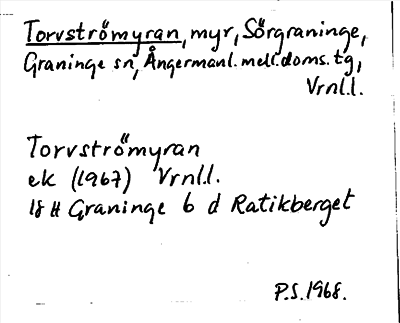 Torvströmyran, myr, Sörgraninge,
Graninge sn, Ångermanl. mell. doms. tg,
Vrnl.l.
Torvströmyran
ek (1967) Vrnl.l.
18 H Graninge 6 d Ratikberget
P.S. 1968.